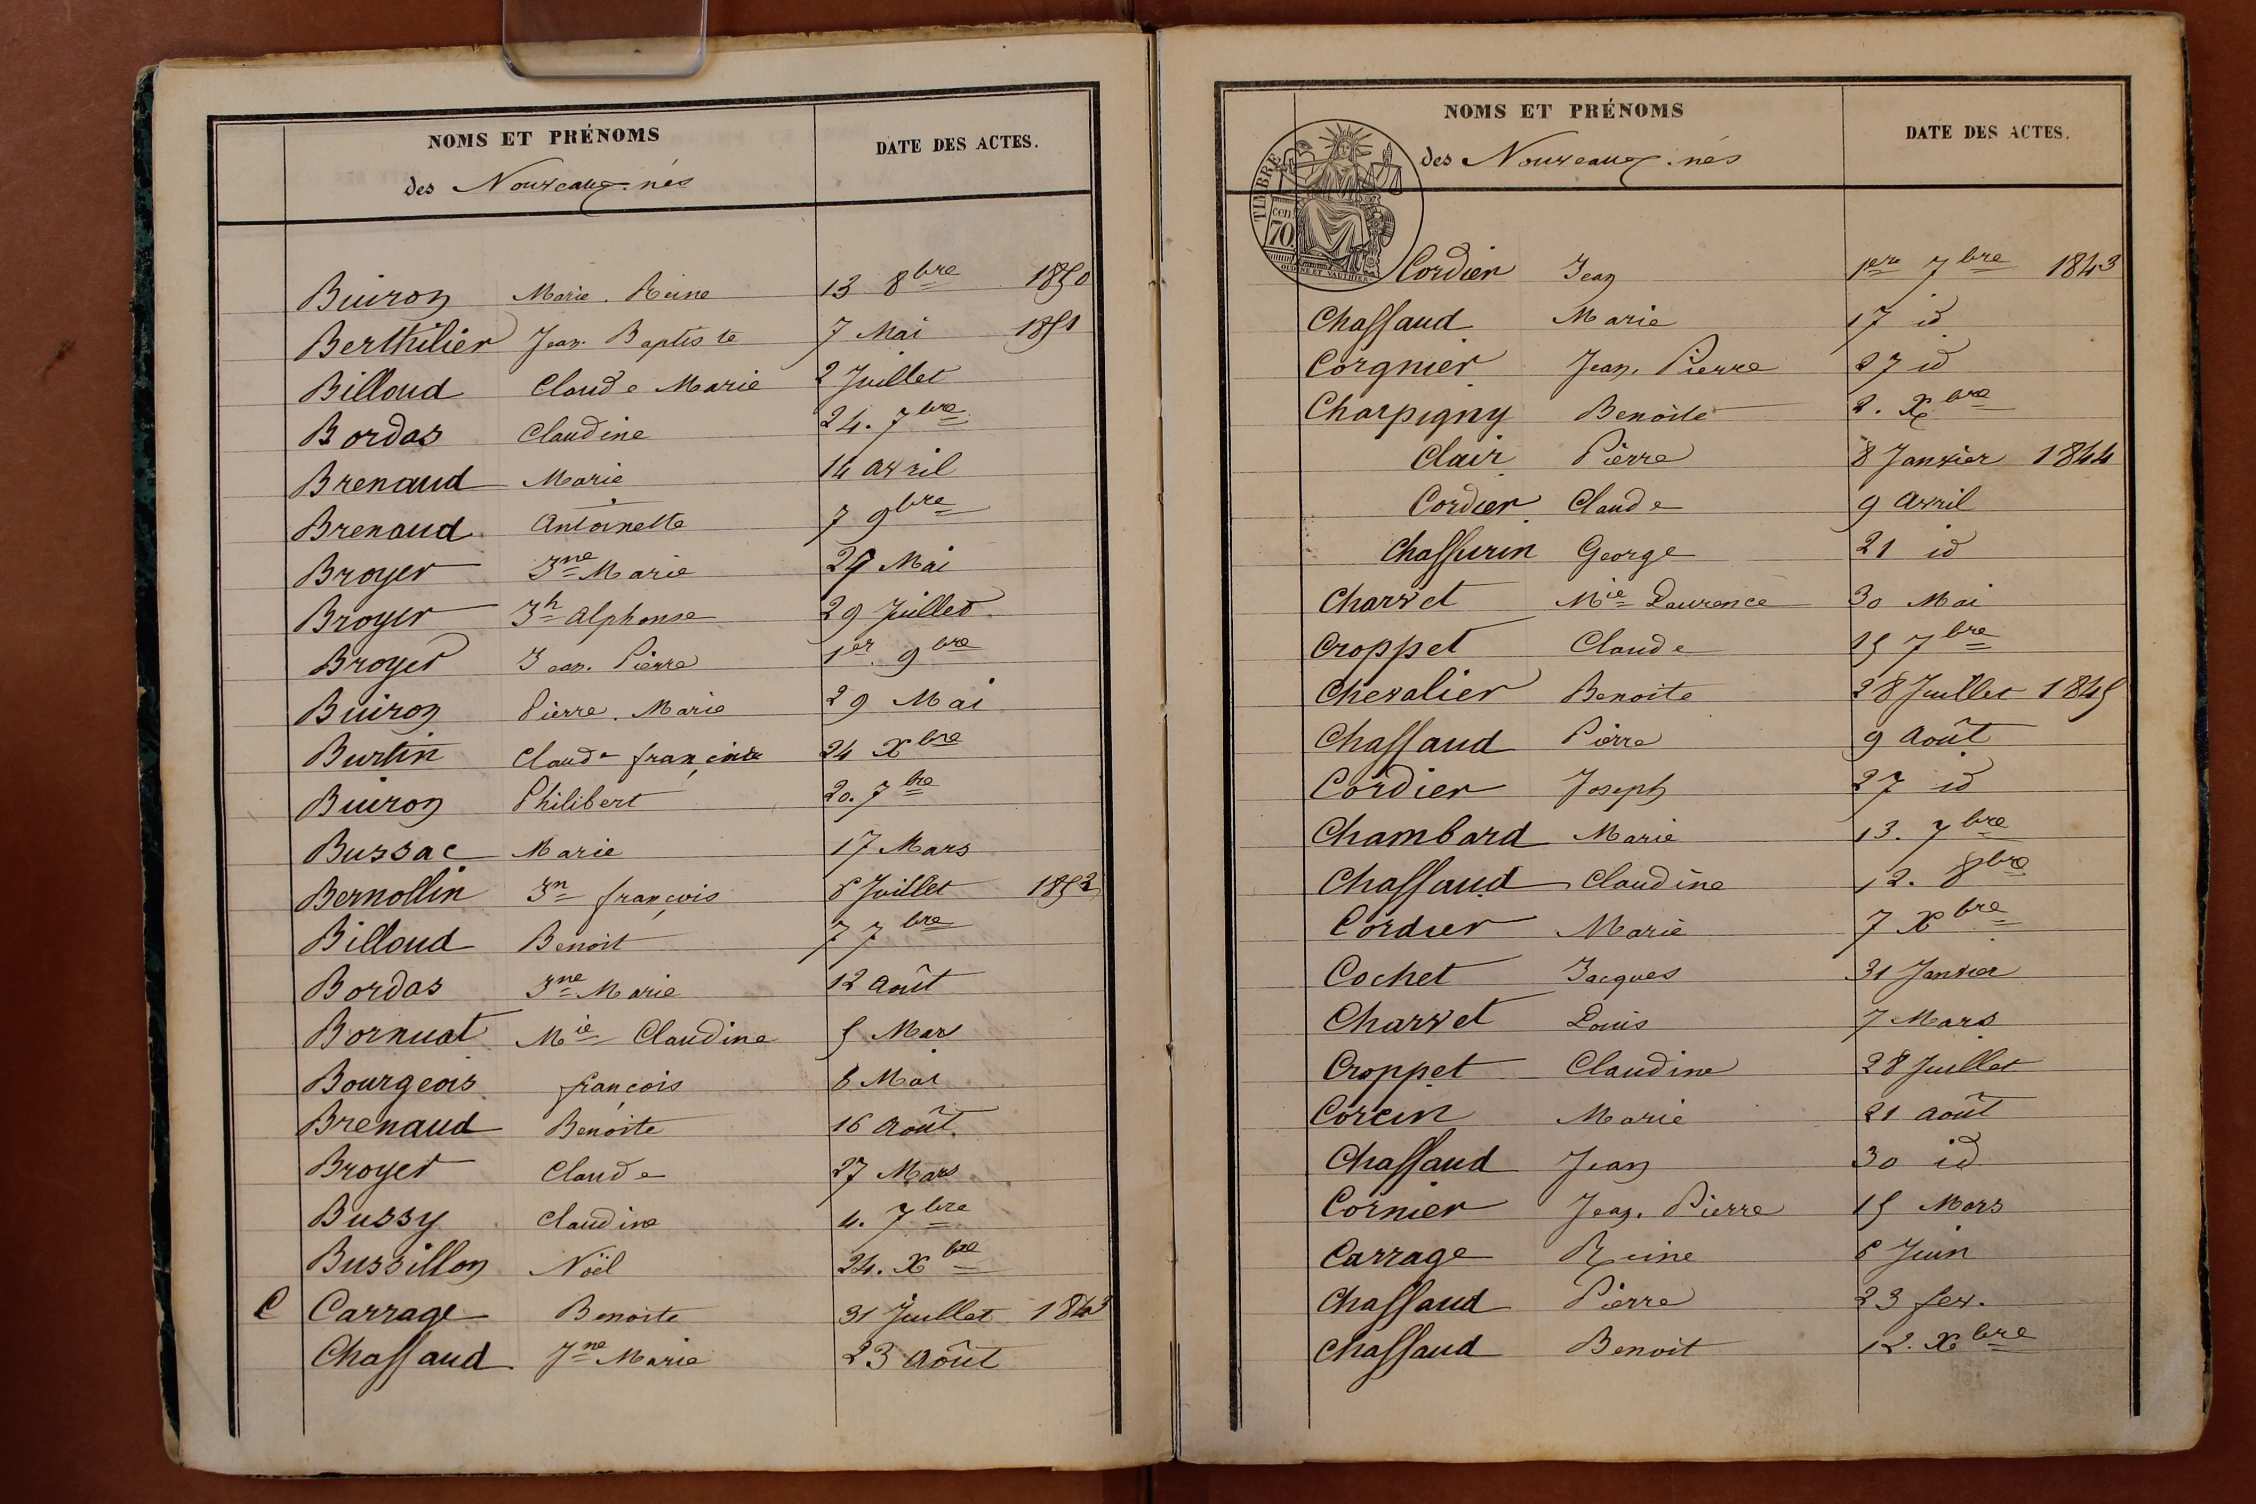 NOMS ET PRÉNOMS
DATE DES ACTES.
des Nouveaux-nés
Buiron Marie. Reine 13 8bre 1850
Berthilier Jean. Baptiste 7 Mai 1851
Billoud Claude Marie 2 Juillet
Bordas Claudine 24. 7bre
Brenaud Marie 14 avril
Brenaud Antoinette 7 9bre
Broyer Jne Marie 29 Mai
Broyer Jh Alphonse 29 Juillet
Broyer Jean. Pierre 1er 9bre
Buiron Pierre. Marie 29 Mai
Burtin Claude 24 Xbre
Buiron Philibert 20. 7bre
Bussac Marie 17 Mars
Bernollin Jn françois 8 Juillet 1852
Billoud Benoit 7 7bre
Bordas Jne Marie 12 Août
Bornuat Mie Claudine 5 Mars
Bourgeois françois 8 Mai
Brenaud Benoite 16 Août.
Broyer Claude 27 Mars
Bussy Claudine 4. 7bre
Bussillon Noël 24. Xbre
C Carrage Benoite 31 Juillet 1843
Chaffaud Jne Marie 23 Août
NOMS ET PRÉNOMS
DATE DES ACTES.
des Nouveaux-nés
TIMBRE
cen.
70.
OUDINÉ ET VAUTHIER
Cordier Jean 1ere 7bre 1843
Chaffaud Marie 17 id
Corgnier Jean. Pierre 27 id
Charpigny Benoite 2. Xbre
Clair Pierre 8 Janvier 1844
Cordier Claude 9 Avril
Chaffurin George 21 id
Charvet Mie Laurence 30 Mai
Croppet Claude 15 7bre
Chevalier Benoite 28 Juillet 1845
Chaffaud Pierre 9 Août
Cordier Joseph 27 id
Chambard Marie 13. 7bre
Chaffaud Claudine 12. 8bre
Cordier Marie 7 Xbre
Cochet Jacques 31 Janvier
Charvet Louis 7 Mars
Croppet Claudine 28 Juillet
Corcin Marie 21 Août
Chaffaud Jean 30 id
Cornier Jean. Pierre 15 Mars
Carrage Reine 8 Juin
Chaffaud Pierre 23 fev.
Chaffaud Benoit 12. Xbre